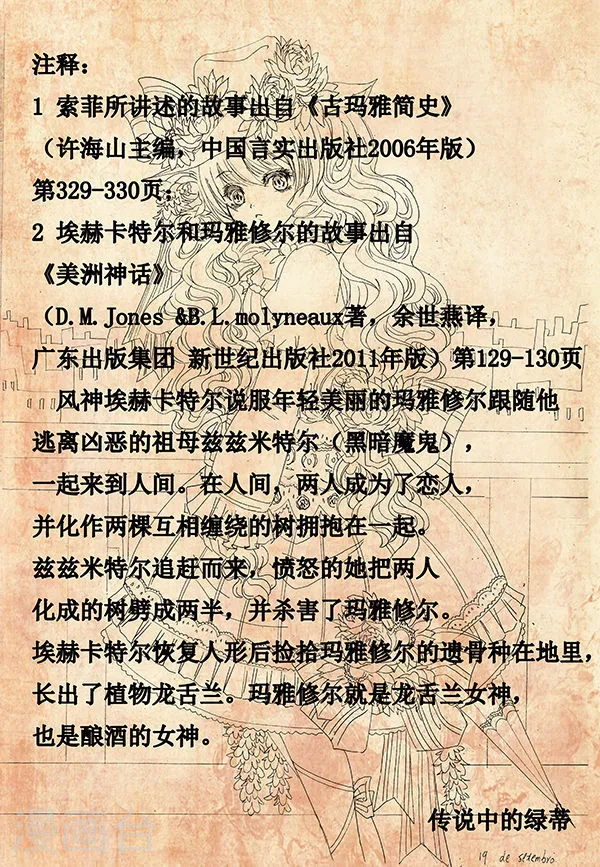 注释：
1 索菲所讲述的故事出自《古玛雅简史》
（许海山主编，中国言实出版社2006年版）
第329-330页；
2 埃赫卡特尔和玛雅修尔的故事出自
《美洲神话》
（D.M.Jones &B.L.molyneaux著，余世燕译，
广东出版集团 新世纪出版社2011年版）第129-130页
风神埃赫卡特尔说服年轻美丽的玛雅修尔跟随他
逃离凶恶的祖母兹兹米特尔（黑暗魔鬼），
一起来到人间。在人间，两人成为了恋人，
并化作两棵互相缠绕的树拥抱在一起。
兹兹米特尔追赶而来，愤怒的她把两人
化成的树劈成两半，并杀害了玛雅修尔。
埃赫卡特尔恢复人形后捡拾玛雅修尔的遗骨种在地里，
长出了植物龙舌兰。玛雅修尔就是龙舌兰女神，
也是酿酒的女神。
传说中的绿蒂
19 de setembro